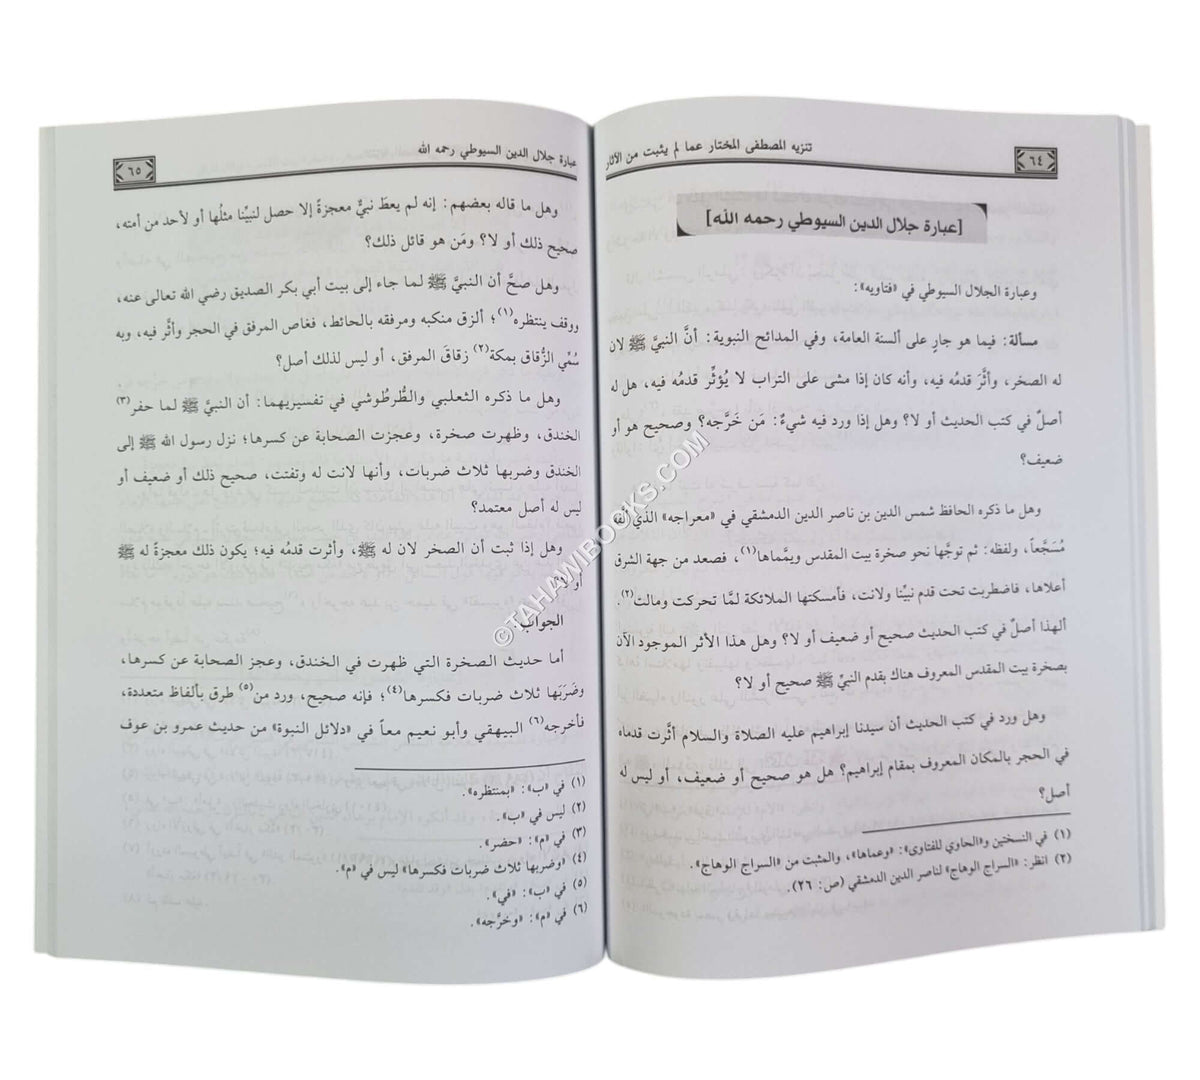 ٦٤
تنزيه المصطفى المختار عما لم يثبت من الآثار
[عبارة جلال الدين السيوطي رحمه الله]
وعبارة الجلال السيوطي في «فتاويه»:
مسألة: فيما هو جارٍ على ألسنة العامة، وفي المدائح النبوية: أنَّ النبيَّ ﷺ لان
له الصخر، وأثَّرَ قدمُه فيه، وأنه كان إذا مشى على التراب لا يُؤثِّر قدمُه فيه، هل له
أصلٌ في كتب الحديث أو لا؟ وهل إذا ورد فيه شيءٌ: مَن خَرَّجه؟ وصحيح هو أو
ضعيف؟
وهل ما ذكره الحافظ شمس الدين بن ناصر الدين الدمشقي في «معراجه» الذي ألفه
مُسَجَّعاً، ولفظه: ثم توجَّها نحو صخرة بيت المقدس ويمَّماها(١)، فصعد من جهة الشرق
أعلاها، فاضطربت تحت قدم نبيِّنا ولانت، فأمسكتها الملائكة لمَّا تحركت ومالت(٢).
ألهذا أصلٌ في كتب الحديث صحيح أو ضعيف أو لا؟ وهل هذا الأثر الموجود الآن
بصخرة بيت المقدس المعروف هناك بقدم النبيِّ ﷺ صحيح أو لا؟
وهل ورد في كتب الحديث أن سيدنا إبراهيم عليه الصلاة والسلام أثَّرت قدماه
في الحجر بالمكان المعروف بمقام إبراهيم؟ هل هو صحيح أو ضعيف، أو ليس له
أصل؟
(١) في النسختين و«الحاوي للفتاوى»: «وعماها»، والمثبت من «السراج الوهاج».
(٢) انظر: «السراج الوهاج» لناصر الدين الدمشقي (ص: ٢٦).
عبارة جلال الدين السيوطي رحمه الله
٦٥
وهل ما قاله بعضهم: إنه لم يعطَ نبيٌّ معجزةً إلا حصل لنبيِّنا مثلُها أو لأحد من أمته،
صحيح ذلك أو لا؟ ومَن هو قائل ذلك؟
وهل صحَّ أن النبيَّ ﷺ لما جاء إلى بيت أبي بكر الصديق رضي الله تعالى عنه،
ووقف ينتظره(١)؛ ألزق منكبه ومرفقه بالحائط، فغاص المرفق في الحجر وأثَّر فيه، وبه
سُمِّي الزُّقاق بمكة(٢) زقاقَ المرفق، أو ليس لذلك أصل؟
وهل ما ذكره الثعلبي والطُّرطُوشي في تفسيريهما: أن النبيَّ ﷺ لما حفر(٣)
الخندق، وظهرت صخرة، وعجزت الصحابة عن كسرها؛ نزل رسول الله ﷺ إلى
الخندق وضربها ثلاث ضربات، وأنها لانت له وتفتت، صحيح ذلك أو ضعيف أو
ليس له أصل معتمد؟
وهل إذا ثبت أن الصخر لان له ﷺ، وأثرت قدمُه فيه؛ يكون ذلك معجزةً له ﷺ
أو لا؟
الجواب:
أما حديث الصخرة التي ظهرت في الخندق، وعجز الصحابة عن كسرها،
وضَرَبَها ثلاث ضربات فكسرها(٤)؛ فإنه صحيح، ورد من(٥) طرق بألفاظ متعددة،
فأخرجه(٦) البيهقي وأبو نعيم معاً في «دلائل النبوة» من حديث عمرو بن عوف
(١) في «ب»: «بمنتظره».
(٢) ليس في «ب».
(٣) في «م»: «حضر».
(٤) «وضربها ثلاث ضربات فكسرها» ليس في «م».
(٥) في «ب»: «في».
(٦) في «م»: «وخرَّجه».
©TAHAWIBOOKS.COM